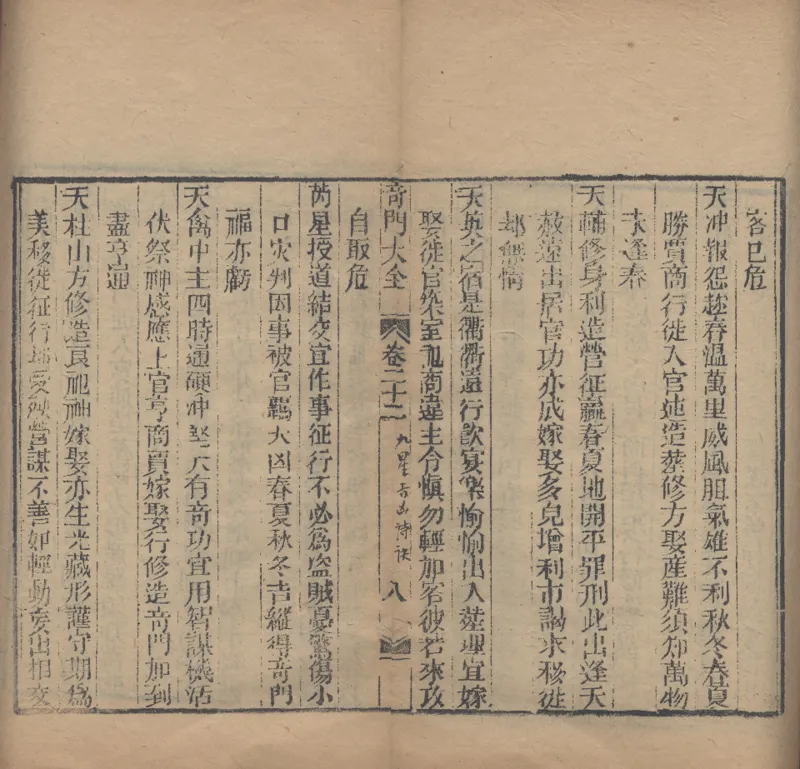 客已危
天冲報怨趂春溫萬里威風胆氣雄不利秋冬春夏
勝賈商行徙入官迍造塟修方娶産難須知萬物
逢春
天輔修身利造營征瀛春夏地開平罪刑此出逢天
赦遠出居官功亦成嫁娶多兒增利市謁求移徙
都無情
天英之宿是衢遠行飲宴樂愉愉出入塟埋宜嫁
娶徙官築室祀商違主令慎勿輕加客彼若來攻
自取危
奇門大全 卷二十二 九星吉凶詩訣 八
芮星授道結交宜作事征行不必爲盜賊憂驚傷小
口灾判因事被官羈大凶春夏秋冬吉縱得奇門
福亦虧
天禽中主四時通有奇功宜用智謀機活
伏祭神感應上官亨商賈嫁娶行修造奇門加到
盡亨通
天柱山方修造良祀神嫁娶亦生光藏形護守期爲
美移徙征行營謀不善如輕動出相交